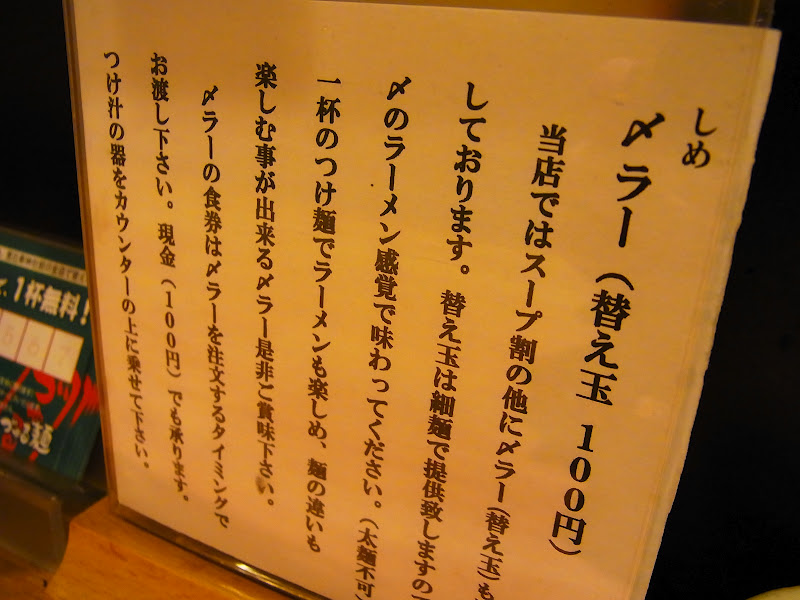 しめ
〆ラー（替え玉 １００円）
当店ではスープ割の他に〆ラー（替え玉）も
しております。替え玉は細麺で提供致しますの
〆のラーメン感覚で味わってください。（太麺不可）
一杯のつけ麺でラーメンも楽しめ、麺の違いも
楽しむ事が出来る〆ラー是非ご賞味下さい。
〆ラーの食券は〆ラーを注文するタイミングで
お渡し下さい。現金（１００円）でも承ります。
つけ汁の器をカウンターの上に乗せて下さい。
１杯無料！
6 7
麺